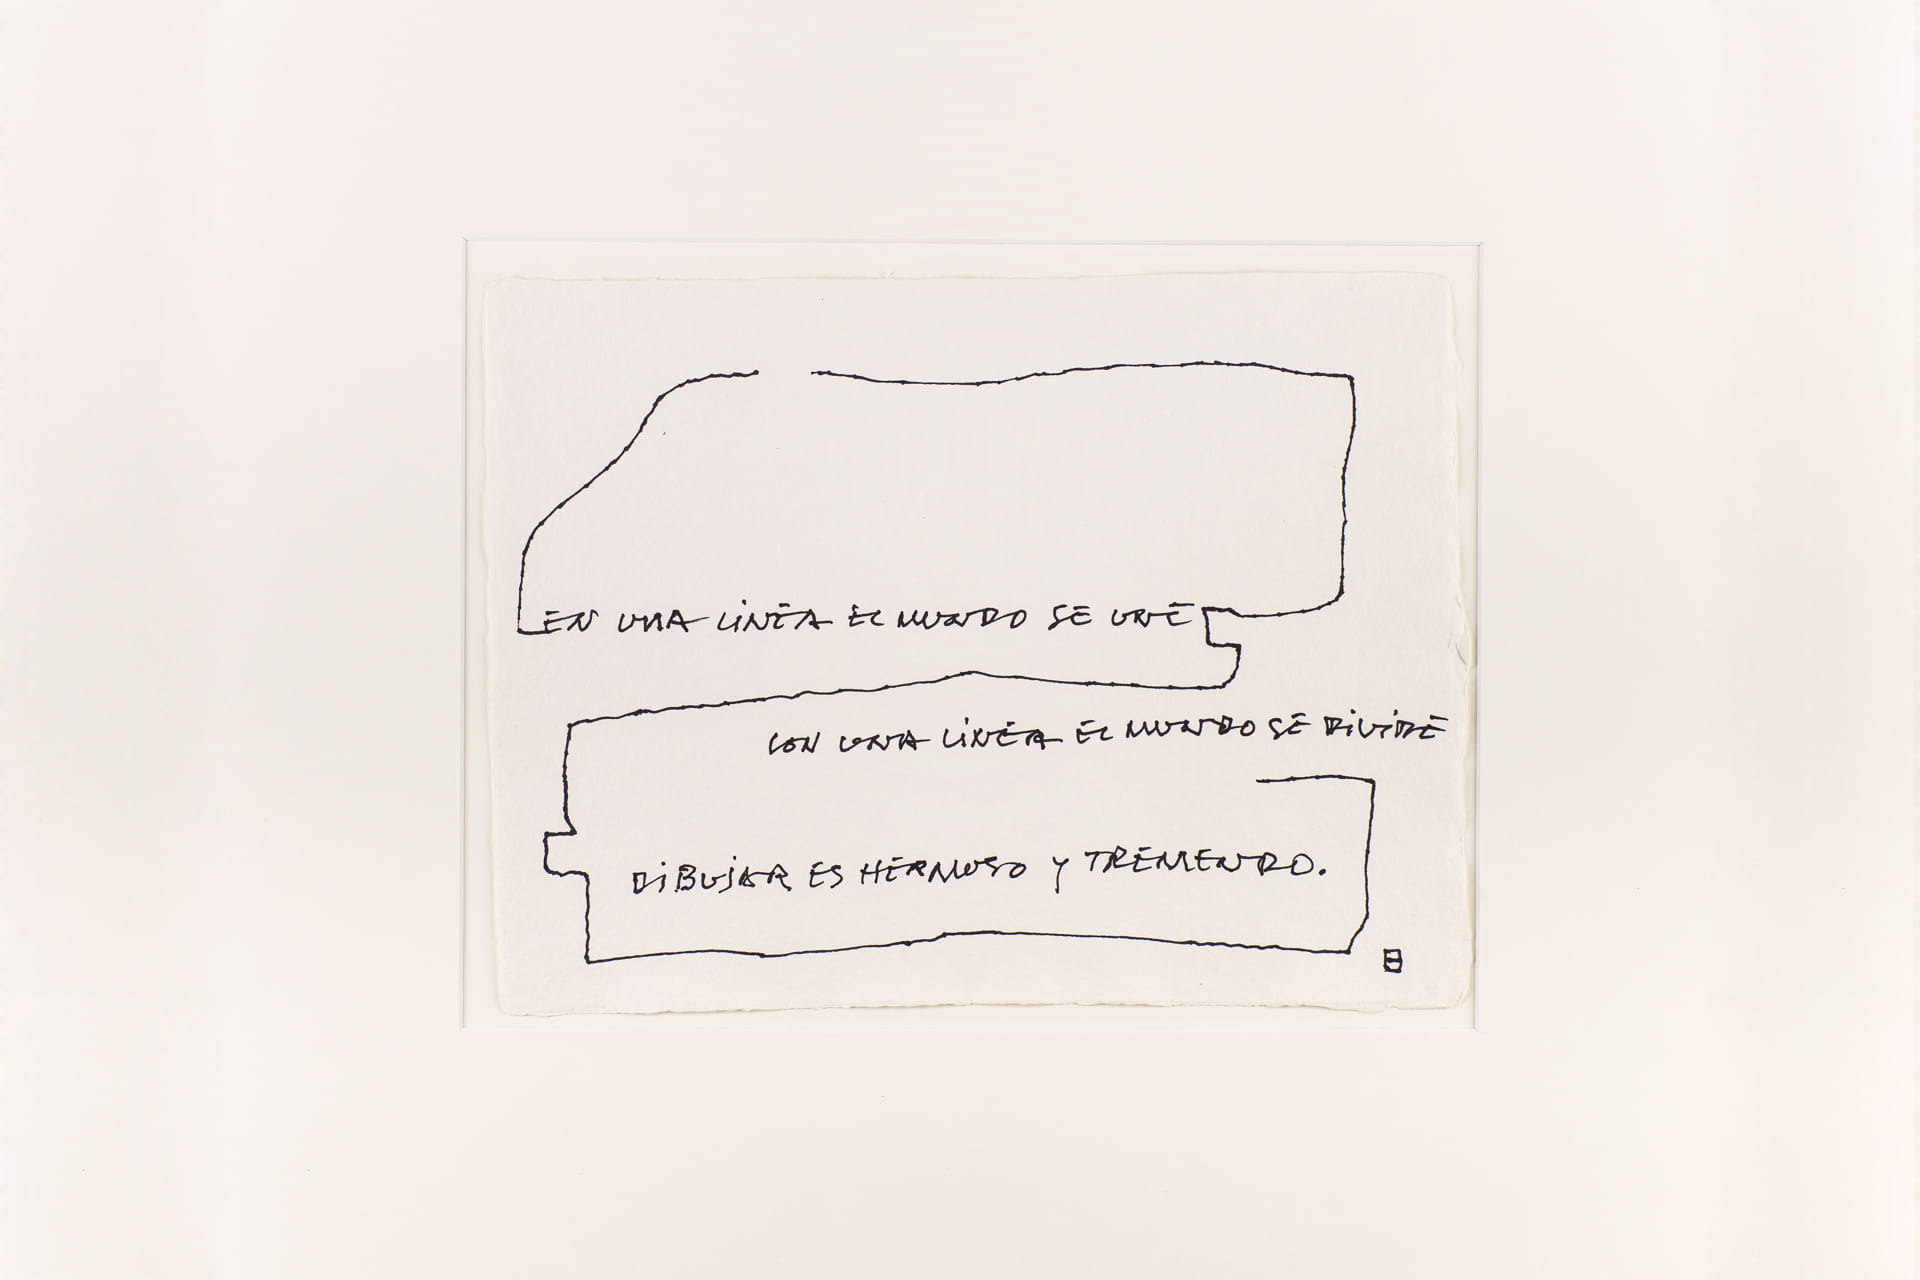 EN UNA LINEA EL MUNDO SE UNE
CON UNA LINEA EL MUNDO SE DIVIDE
DIBUJAR ES HERMOSO Y TREMENDO.